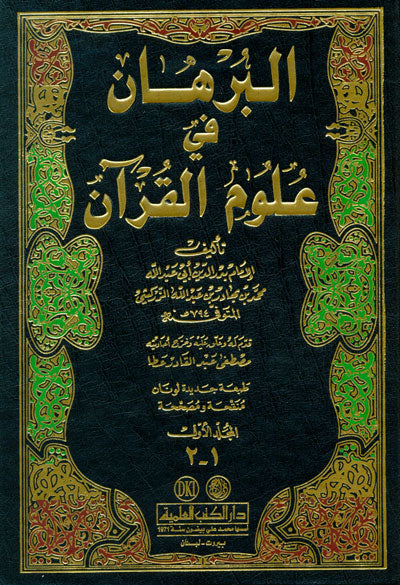 البُرْهَان
في
عُلُومِ القُرْآن
تأليف
الإمام بدر الدين أبي عبد الله
محمد بن بهادر بن عبد الله الزركشي
المتوفى ٧٩٤ هـ
قدم له وعلق عليه وخرج أحاديثه
مصطفى عبد القادر عطا
طبعة جديدة لونان
منقحة ومصححة
المجلد الأول
١-٢
DKI
دار الكتب العلمية
أسسها محمد علي بيضون سنة 1971
بيروت - لبنان